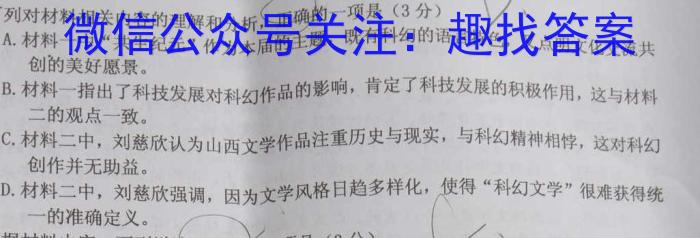 下列对材料相关内容的理解和分析，正确的一项是（3分）
微信公众号关注：趣找答案
A. 材料一
创的美好愿景。
B. 材料一指出了科技发展对科幻作品的影响，肯定了科技发展的积极作用，这与材料
二的观点一致。
C. 材料二中，刘慈欣认为山西文学作品注重历史与现实，与科幻精神相悖，这对科幻
创作并无助益。
D. 材料二中，刘慈欣强调，因为文学风格日趋多样化，使得“科幻文学”很难获得统
一的准确定义。